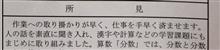 所見
作業への取り掛かりが早く、仕事を手早く済ませます。
人の話を素直に聞き入れ、漢字や計算などの学習課題にも
まじめに取り組みました。算数「分数」では、分数と分数